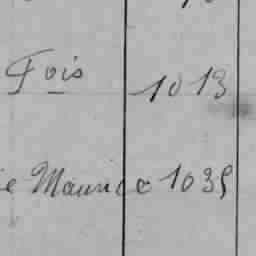 Fois 1013
e Maurice 1035